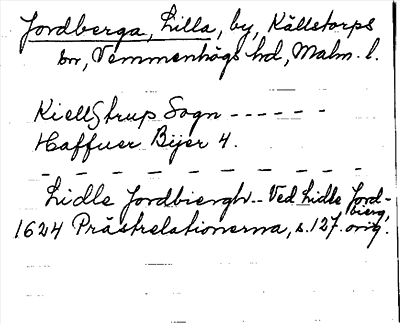 Jordberga, Lilla, by, Källstorps
sn, Vemmenhögs hd, Malm. l.
Kiellstrup Sogn - - - - - -
Haffuer Bijer 4.
- - - - - - - - - -
Lidle Jordbiergh - - Ved Lidle Jord-
bierg,
1624 Prästrelationerna, s. 127. orig.